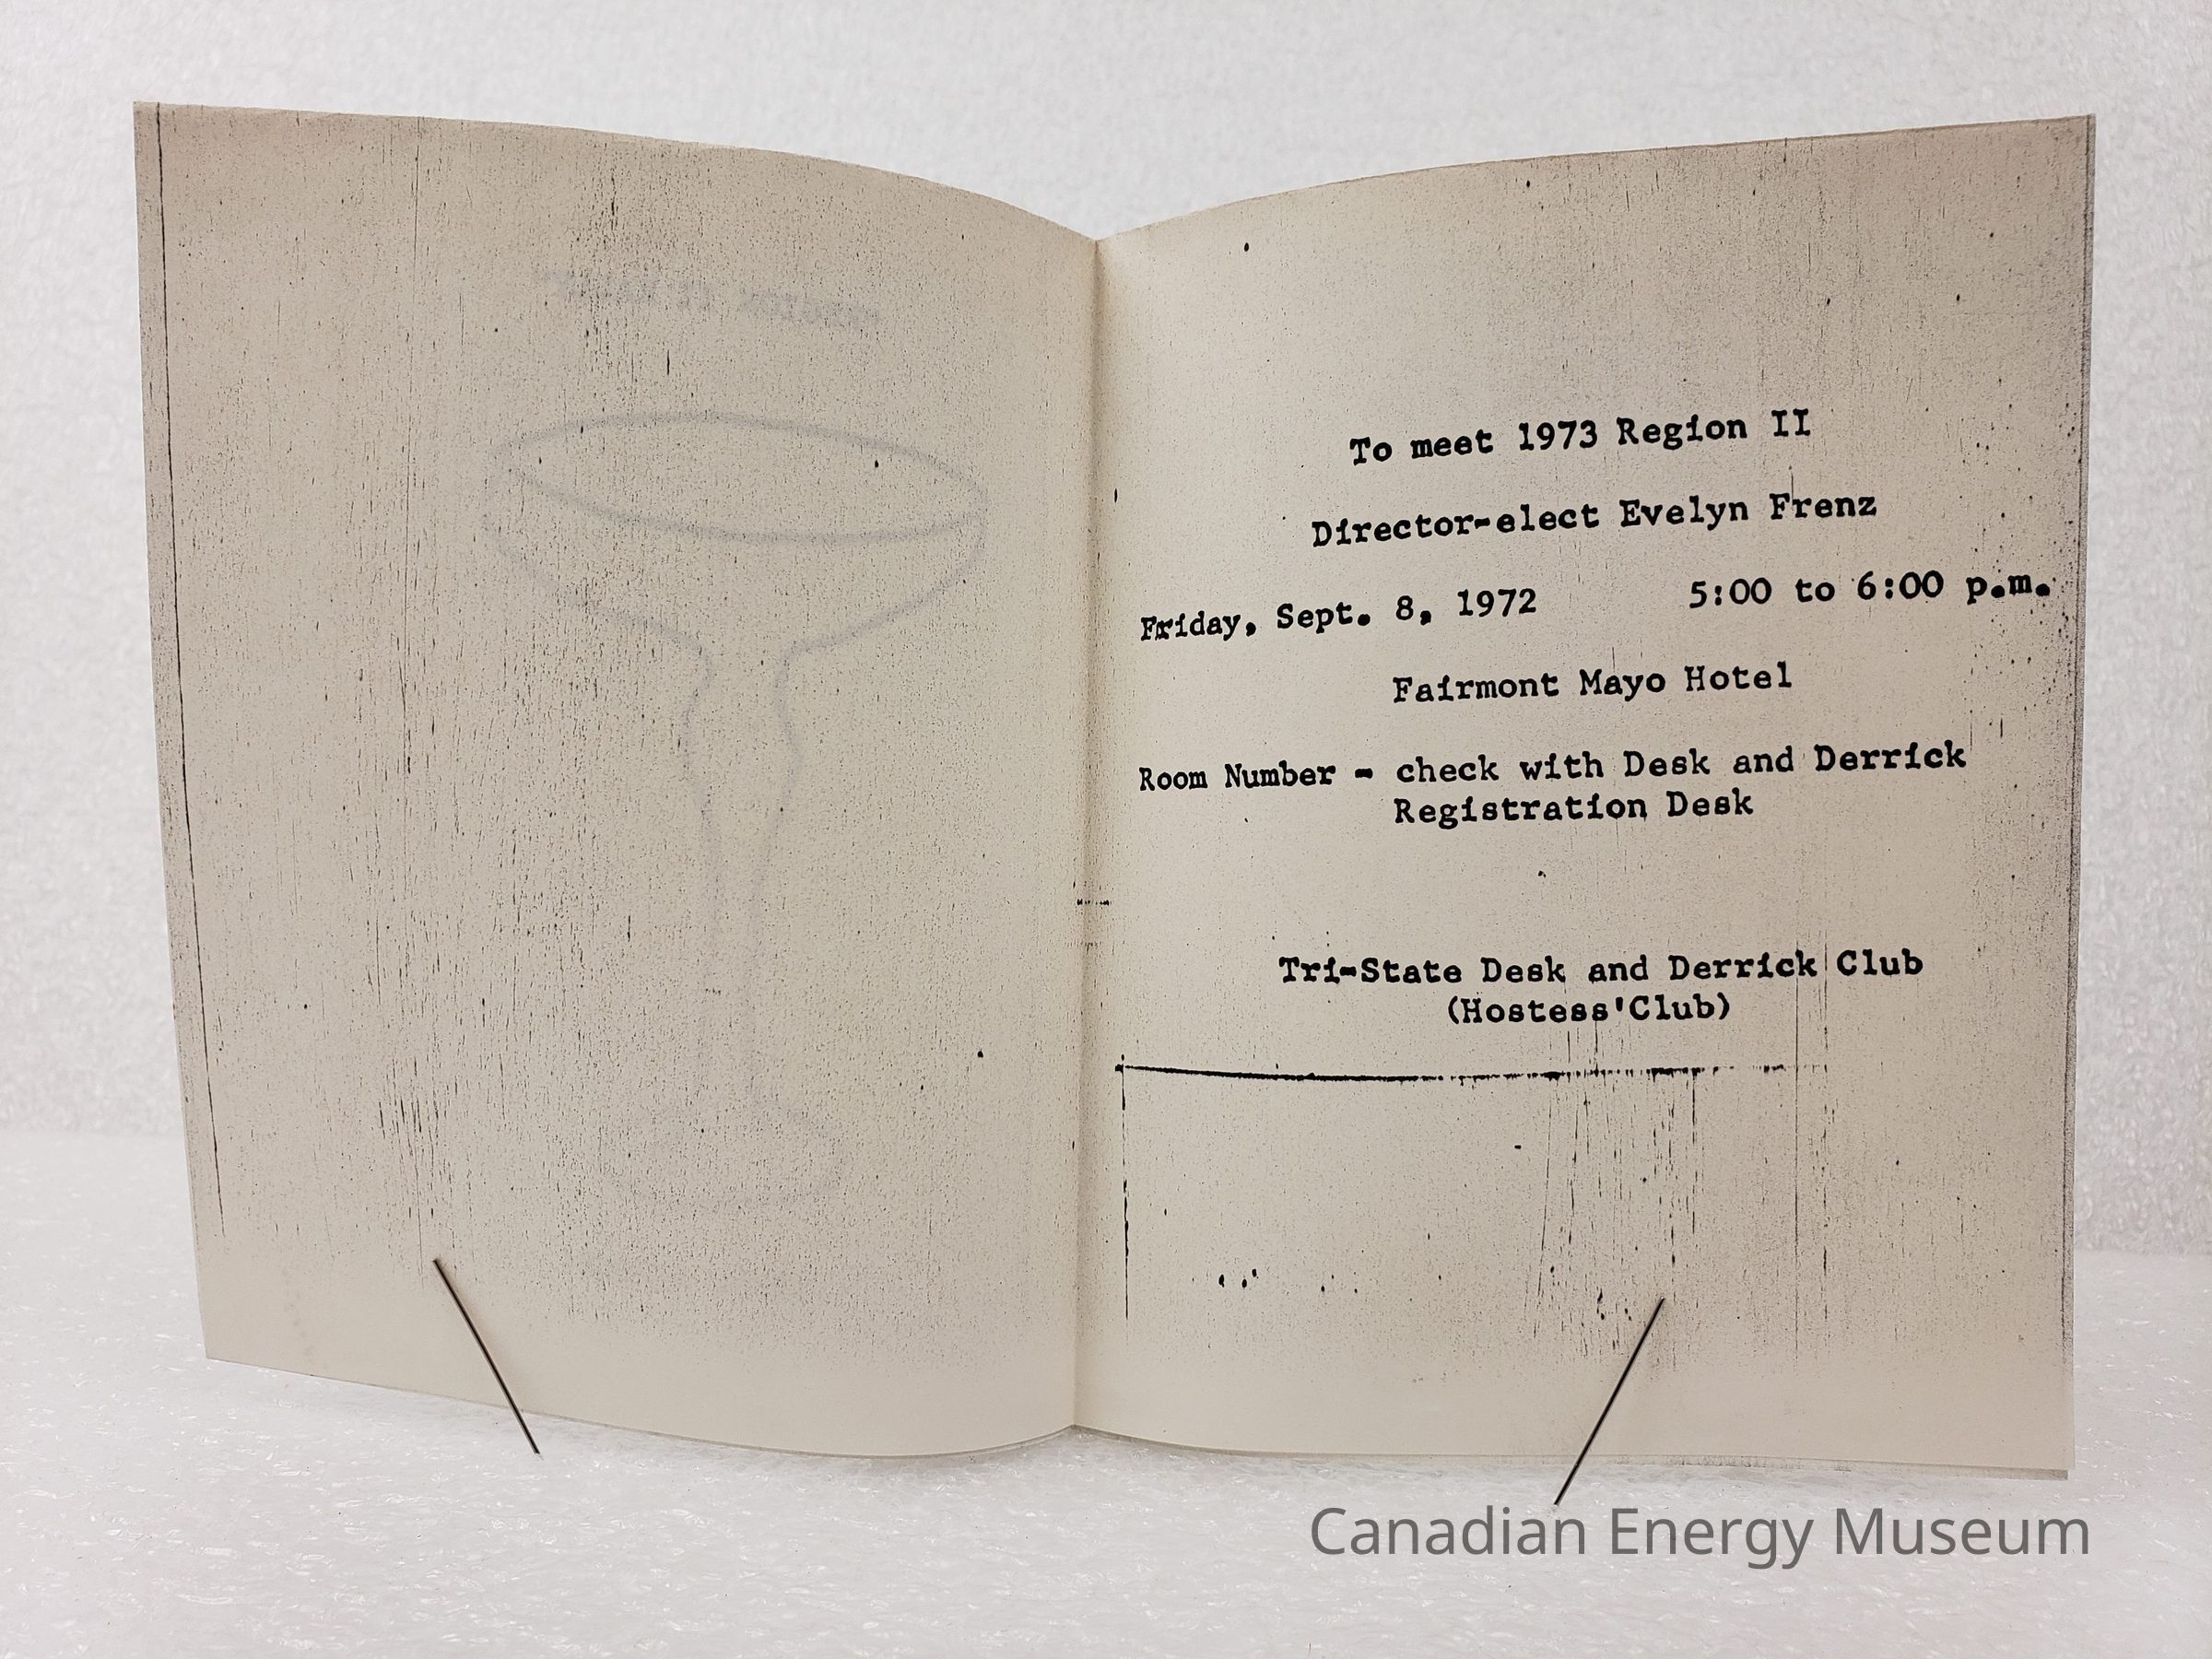 To meet 1973 Region II
Director-elect Evelyn Frenz
Friday, Sept. 8, 1972 5:00 to 6:00 p.m.
Fairmont Mayo Hotel
Room Number - check with Desk and Derrick
Registration Desk
Tri-State Desk and Derrick Club
(Hostess'Club)
Canadian Energy Museum